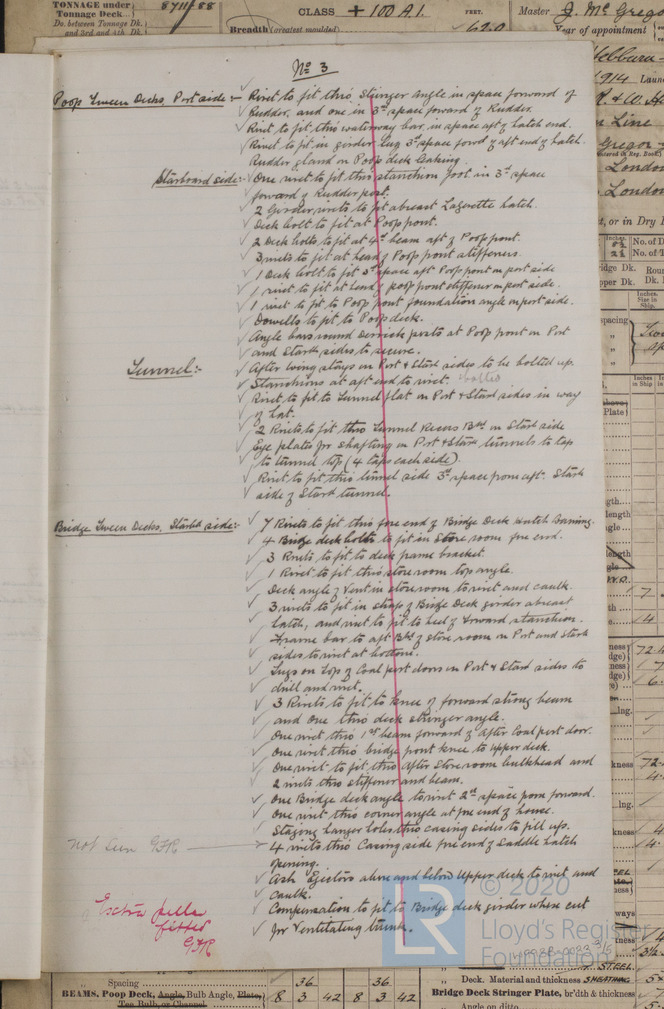 TONNAGE under
Tonnage Deck
8711.88
Do. between Tonnage Dk.
and 3rd and 4th Dk.
CLASS + 100 A.1.
FEET.
Breadth (greatest moulded)
62.0
Master J. McGregor
Year of appointment
Hebburn
1914
Line
Gregor
London
London
or in Dry
No 3
Poop Tween Decks, Port side:- Rivet to fit thro Stringer Angle in space forward of
Rudder, and one in 3rd space forward of Rudder.
Rivet to fit thro waterway bar, in space aft of hatch end.
Rivet to fit in girder lug 3rd space forwd of aft end of hatch.
Rudder gland on Poop deck Caulking.
Starboard side:- One rivet to fit thro stanchion foot in 3rd space
forward of Rudder post.
2 Girder rivets to fit abreast Lazerette hatch.
Deck bolt to fit at Poop front.
2 Deck bolts to fit at 4th beam aft of Poop front.
3 rivets to fit at head of Poop front stiffeners.
1 Deck bolt to fit 3rd space aft Poop front on port side
1 rivet to fit at head of poop front stiffener on port side.
1 rivet to fit to Poop front foundation angle on port side.
Dowells to fit to Poop deck.
Angle bars round Derrick posts at Poop front on Port
and Starb sides to secure.
Tunnel:- After wing stays on Port & Starb sides to be bolted up.
Stanchions at aft end to rivet. bolted
Rivet to fit to Tunnel flat on Port & Starb sides in way
of hat.
2 Rivets to fit thro Tunnel Recess Bhd on Starb side
Eye plates for shafting on Port & Starb tunnels to tap
to tunnel top (4 taps each side).
Rivet to fit thro tunnel side 3rd space from aft. Starb
side of Starb tunnel.
Bridge Tween Decks, Starbd side:- 7 Rivets to fit thro fore end of Bridge Deck hatch Coaming.
4 Bridge deck bolts to fit in Store room fore end.
3 Rivets to fit to deck frame bracket.
1 Rivet to fit thro store room top angle.
Deck angle of Vent in store room to rivet and caulk.
3 rivets to fit in strap of Bridge Deck girder abreast
hatch, and rivet to fit to heel of forward stanchion.
Frame bar to aft Bhd of store room on Port and Starb
sides to rivet at bottom.
Lugs on top of Coal port doors on Port & Starb sides to
drill and rivet.
3 Rivets to fit to knee of forward strong beam
and one thro deck stringer angle.
One rivet thro 1st beam forward of after Coal port door.
One rivet thro bridge front knee to upper deck.
One rivet to fit thro after Store room bulkhead and
2 rivets thro stiffener and beam.
One Bridge deck angle to rivet 2nd space from forward.
One rivet thro corner angle at fore end of house.
Staging hanger holes thro casing sides to fill up.
not seen GFR
4 rivets thro Casing side fore end of Saddle hatch
opening.
Ash Ejectors above and below Upper deck to rivet and
caulk.
Extra pillar
fitted
GFR
Compensation to fit to Bridge deck girder where cut
for Ventilating trunk.
© 2020
Lloyd's Register
Foundation
LR
Spacing 36 36
BEAMS, Poop Deck, Angle, Bulb Angle, Plate,
Tee Bulb, or Channel
8 3 42 8 3 42
Deck. Material and thickness
STEEL
SHEATHING
Bridge Deck Stringer Plate, br'dth & thickness
Angle on ditto